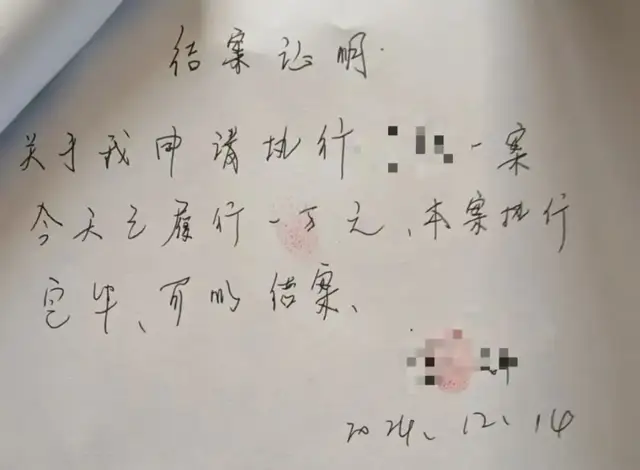 结案证明
关于我申请执行 一案
今天已履行一万元、本案执行
完毕、可以结案、
2024、12、14